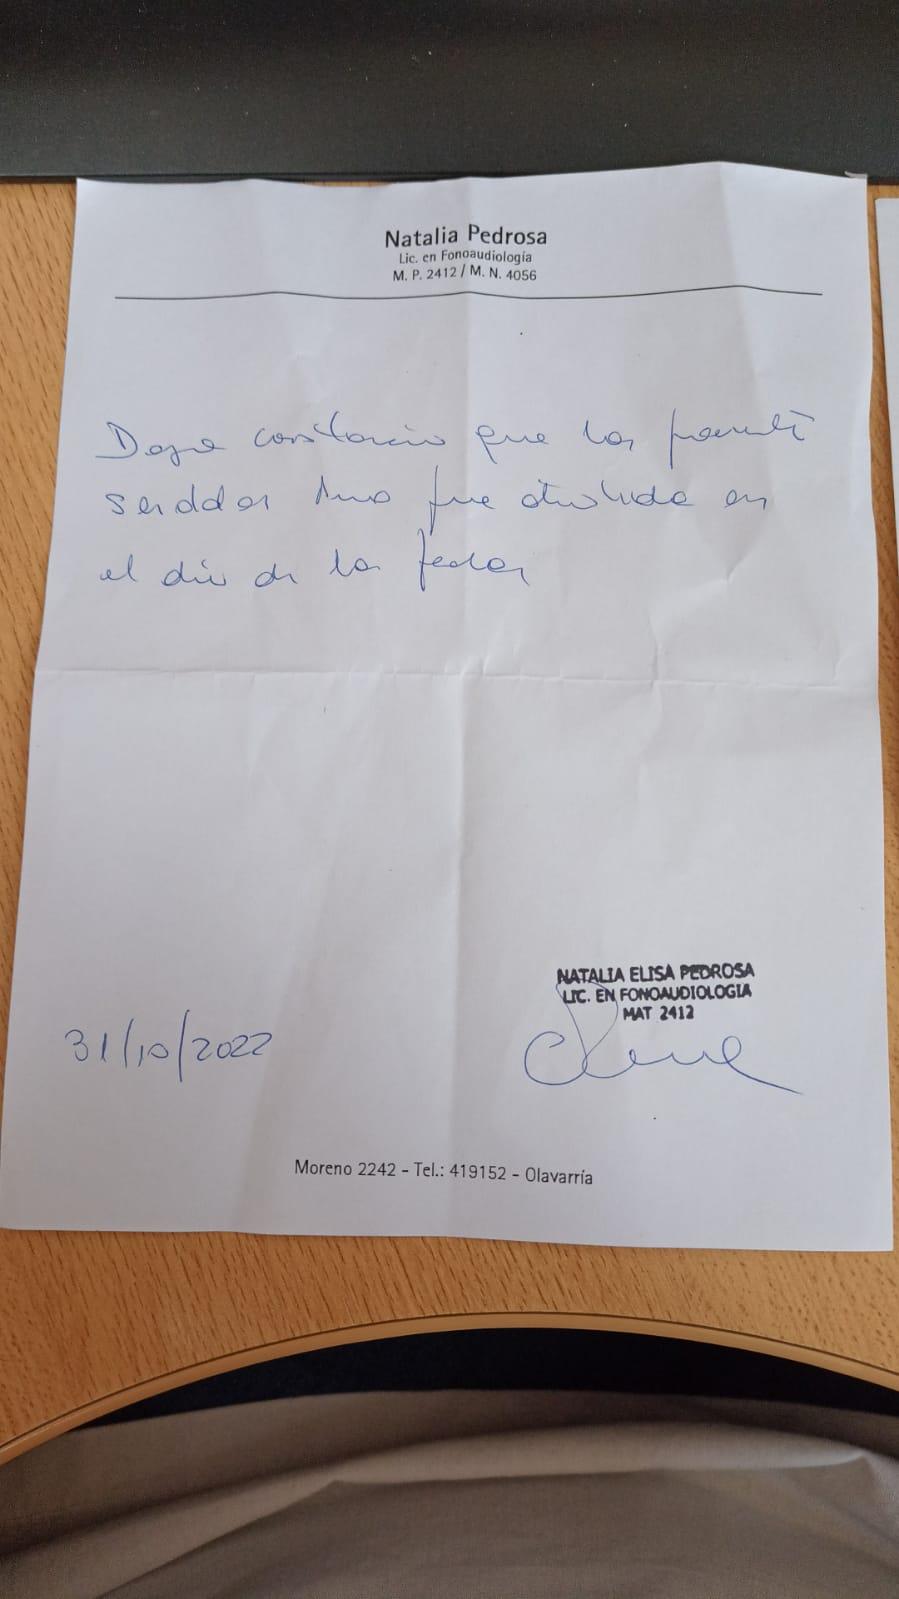 Natalia Pedrosa
Lic. en Fonoaudiología
M. P. 2412 / M. N. 4056
Dejo constancia que la
fue atendida en
el día de la fecha
NATALIA ELISA PEDROSA
LIC. EN FONOAUDIOLOGIA
MAT 2412
31/10/2022
Moreno 2242 - Tel.: 419152 - Olavarría